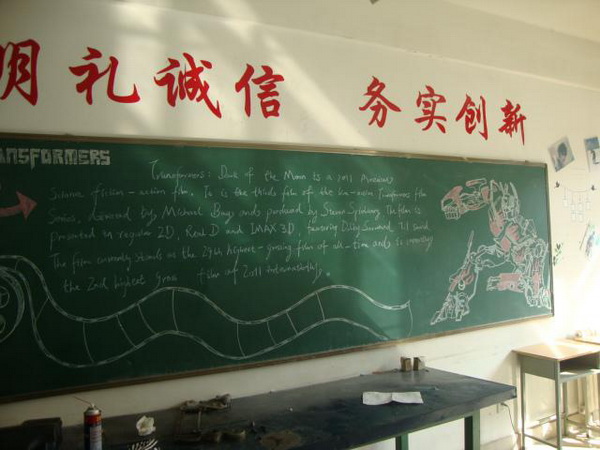 明礼诚信 务实创新
ANSFORMERS
Transformers: Dark of the Moon is a 2011 American
Science fiction-action film. It is the third film of the live-action Transformers film
Series, directed by Michael Bay and produced by Steven Spielberg. The film is
presented in regular 2D, Real D and IMAX 3D, featuring Dolby Surround 7.1 sound.
The film currently stands as the highest-grossing film of all-time and is currently
the 2nd highest film of 2011 internationally.